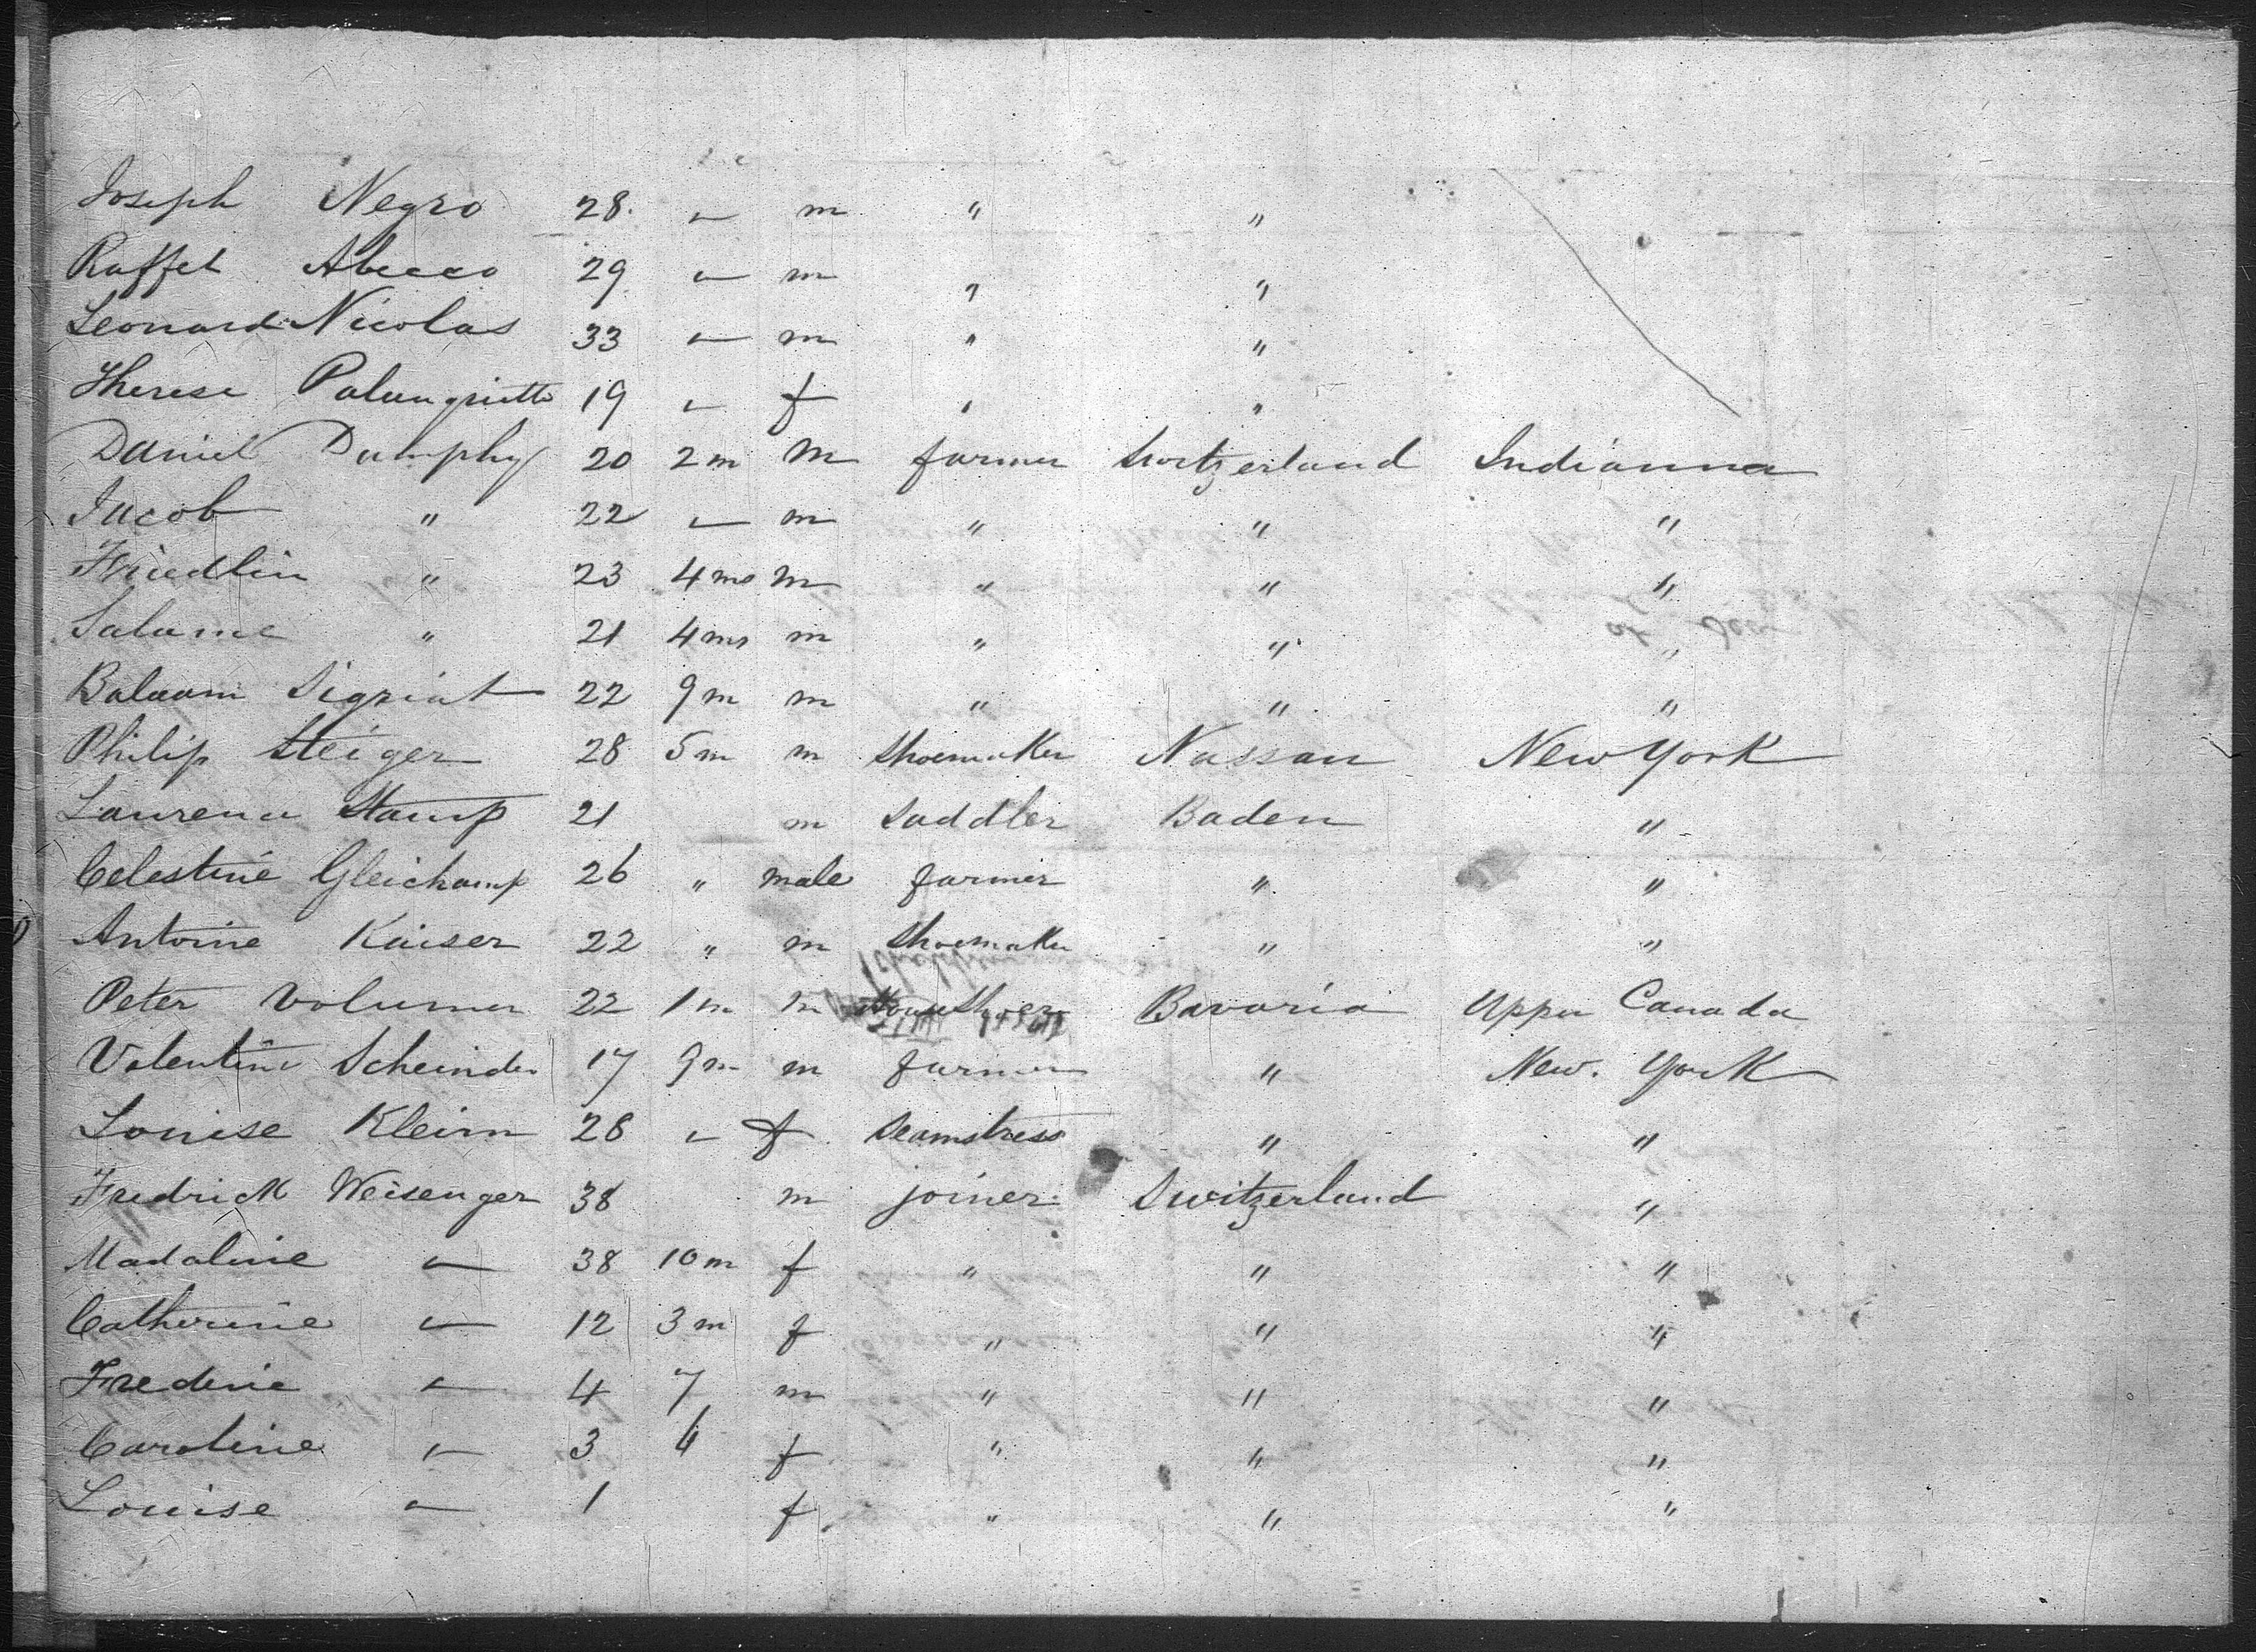 Joseph Negro 28 " m " "
Raffel Abecco 29 " m " "
Leonard Nicolas 33 " m " "
Therese 19 " f " "
Daniel Dumphy 20 2m m farmer Switzerland Indianna
Jacob " 22 " m " " "
Friedlin " 23 4ms m " " "
Salame " 21 4ms m " " "
Balaam Sigrint 22 9m m " " "
Philip Steiger 28 5m m Shoemaker Nassau New York
Laurence Stamp 21 m Saddler Baden "
Celestine Gleichamp 26 " male farmer " "
Antoine Kaiser 22 " m Shoemaker " "
Peter Volumer 22 1m m Bavaria Upper Canada
Valentine Scheinder 17 9m m farmer " New. York
Louise Kleim 28 " f Seamstress " "
Fredrick Weisenger 38 m joiner Switzerland "
Madaline " 38 10m f " " "
Catherine " 12 3m f " " "
Frederic " 4 7 m " " "
Caroline " 3 4 f " " "
Louise " 1 f " " "